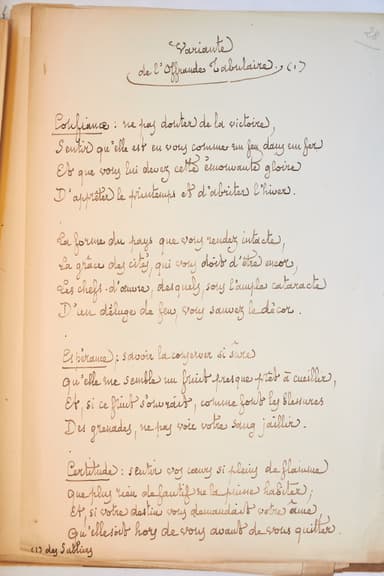 Variante
de l'Offrande Tabulaire. (1)
Confiance : ne pas douter de la victoire,
Sentir qu'elle est en vous comme un feu dans un fer
Et que vous lui devez cette émouvante gloire
D'apprêter le printemps et d'abriter l'hiver.
La forme du pays que vous rendez intacte,
La grâce des cités, qui vous doit d'être encor,
Les chefs-d'œuvre, desquels, sous l'ample cataracte
D'un déluge de feu, vous sauvez le décor.
Espérance ; savoir la conserver si sûre
Qu'elle me semble un fruit presque prêt à cueillir,
Et, si ce fruit s'ouvrait, comme font les blessures
Des grenades, ne pas voir votre sang jaillir.
Certitude : sentir vos cœurs si pleins de flamme
Que plus rien de fautif ne la puisse habiter ;
Et, si votre destin vous demandait votre âme,
Qu'elle soit hors de vous avant de vous quitter.
(1) des
28